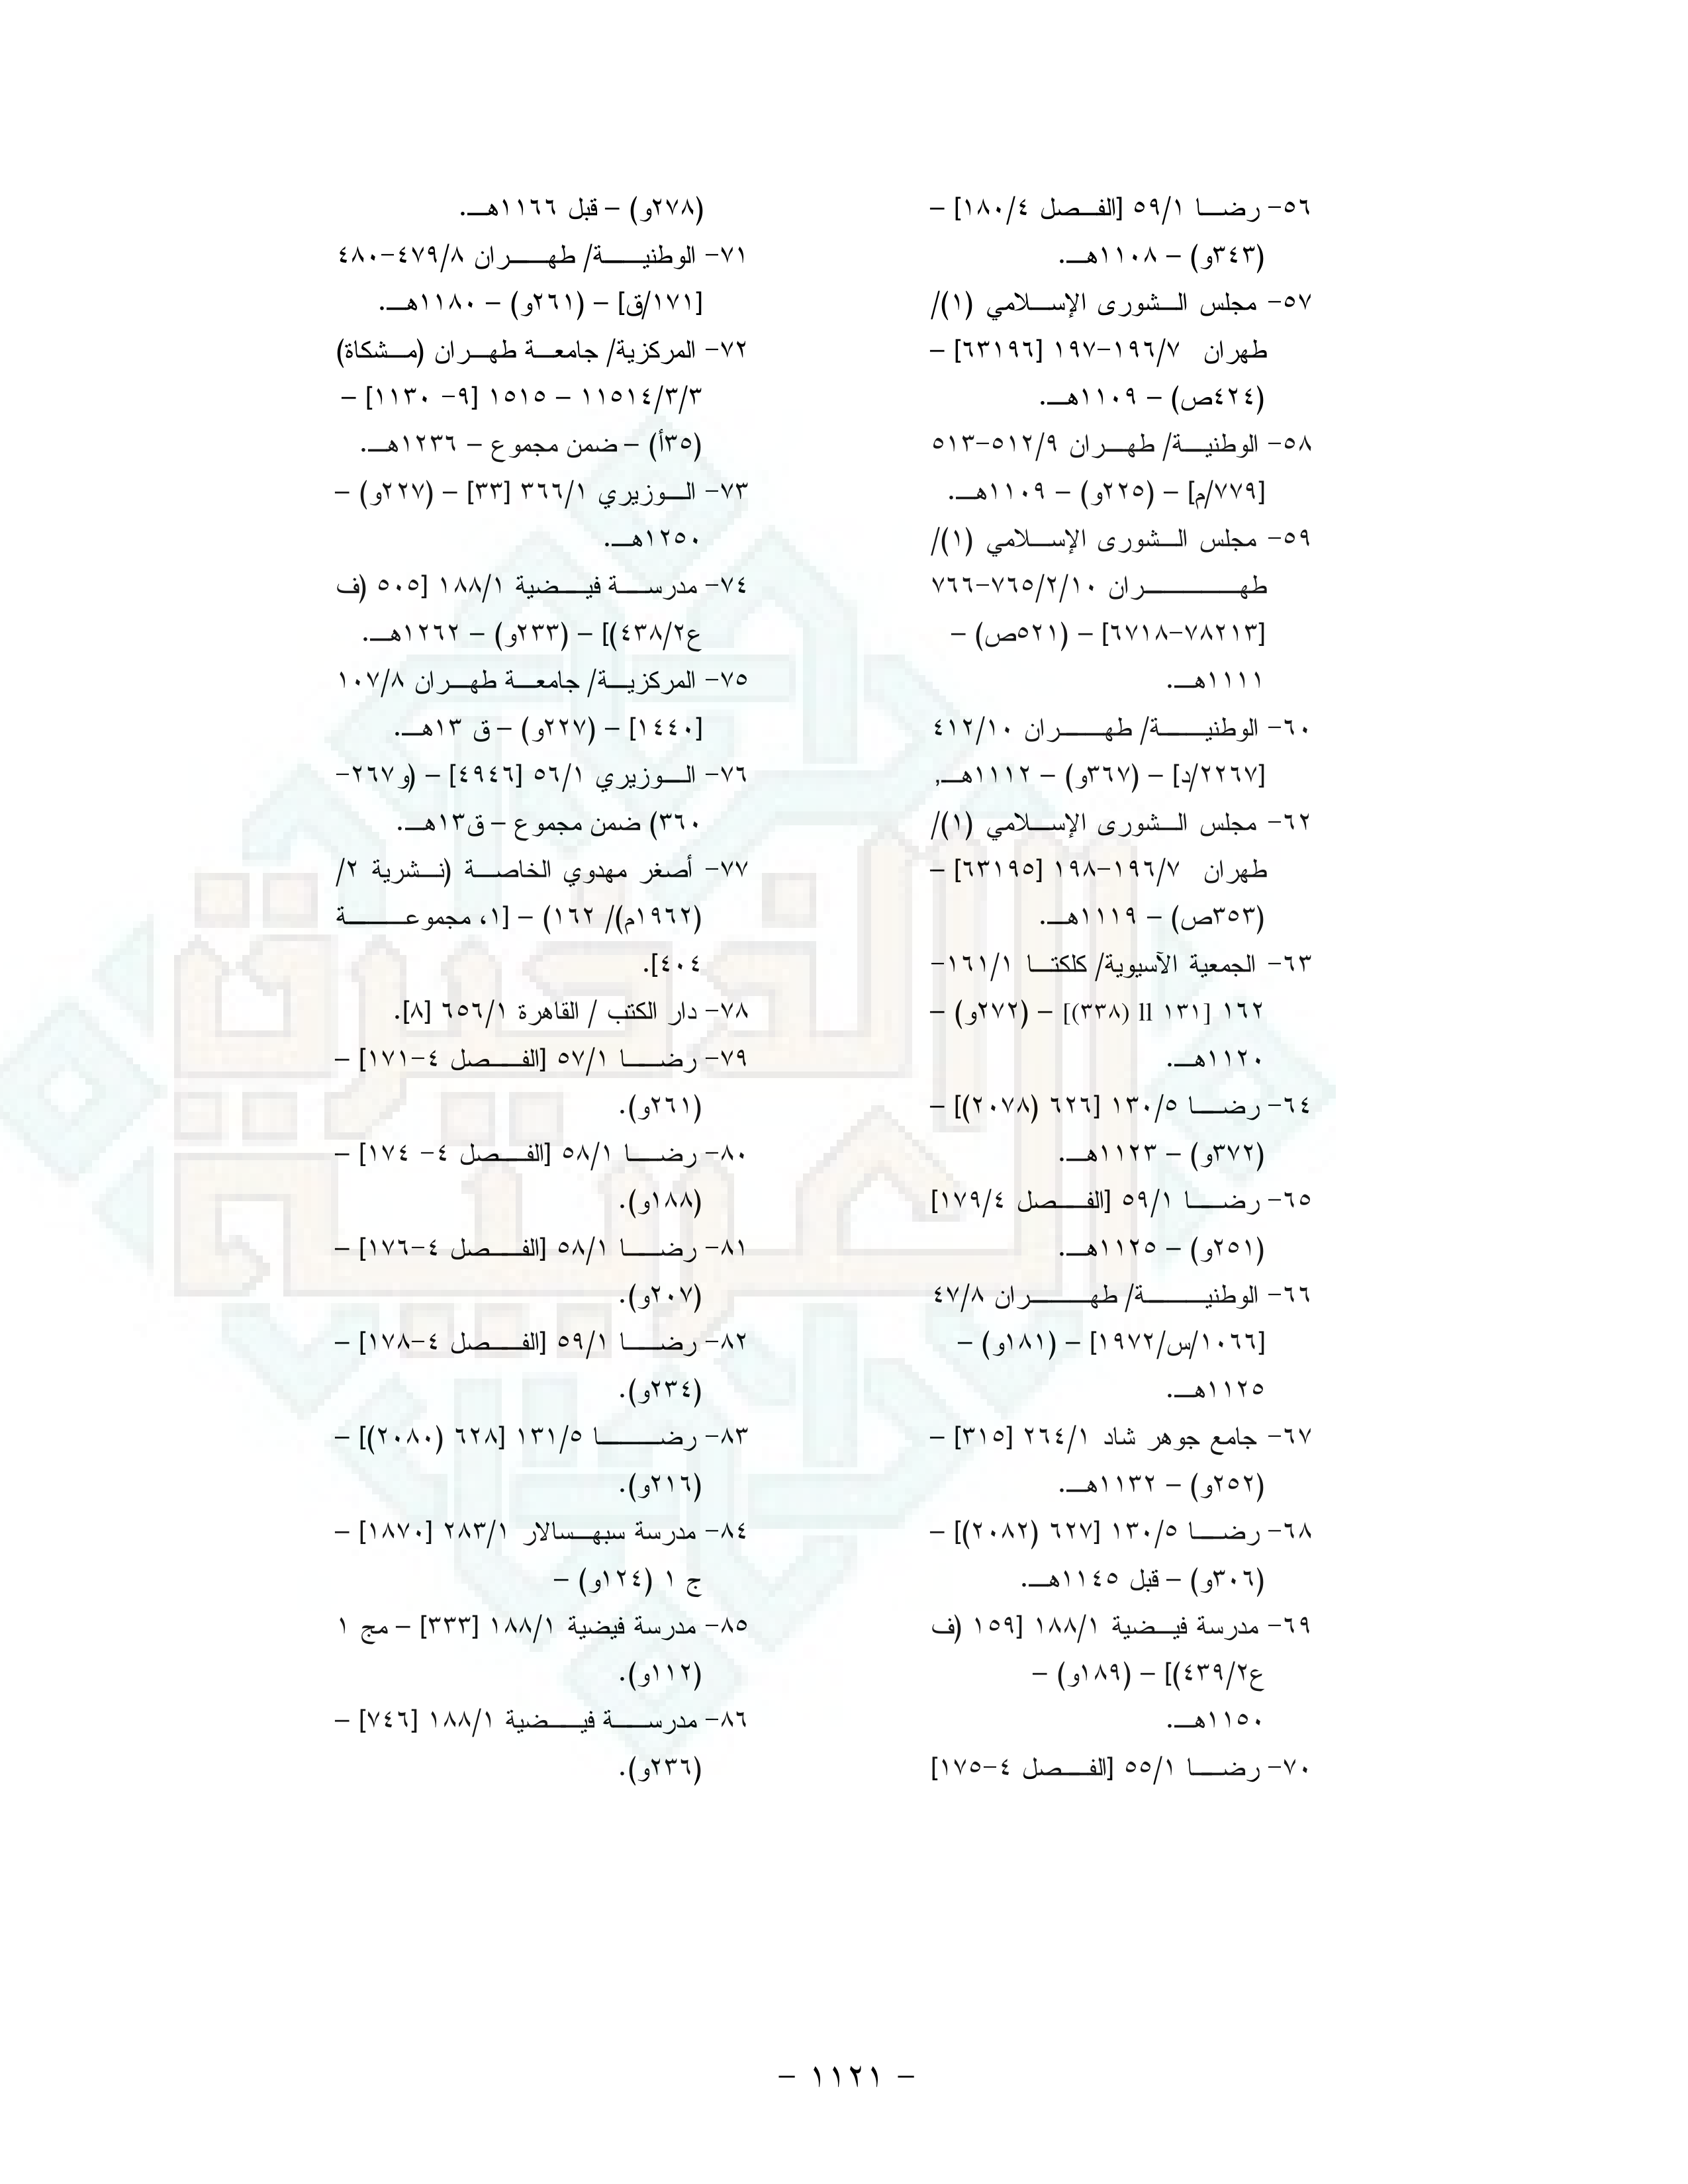 ٥٦- رضا ٥٩/١ [الفصل ١٨٠/٤] -
(٣٤٣و) - ١١٠٨هـ.
٥٧- مجلس الشورى الإسلامي (١)/
طهران ١٩٦/٧-١٩٧ [٦٣١٩٦] -
(٤٢٤ص) - ١١٠٩هـ.
٥٨- الوطنية/ طهران ٥١٢/٩-٥١٣
[٧٧٩/م] - (٢٢٥و) - ١١٠٩هـ.
٥٩- مجلس الشورى الإسلامي (١)/
طهران ٧٦٥/٢/١٠-٧٦٦
[٧٨٢١٣-٦٧١٨] - (٥٢١ص) -
١١١١هـ.
٦٠- الوطنية/ طهران ٤١٢/١٠
[٢٢٦٧/د] - (٣٦٧و) - ١١١٢هـ,
٦٢- مجلس الشورى الإسلامي (١)/
طهران ١٩٦/٧-١٩٨ [٦٣١٩٥] -
(٣٥٣ص) - ١١١٩هـ.
٦٣- الجمعية الآسيوية/ كلكتا ١٦١/١-
١٦٢ [١٣١ ll (٣٣٨)] - (٢٧٢و) -
١١٢٠هـ.
٦٤- رضا ١٣٠/٥ [٦٢٦ (٢٠٧٨)] -
(٣٧٢و) - ١١٢٣هـ.
٦٥- رضا ٥٩/١ [الفصل ١٧٩/٤]
(٢٥١و) - ١١٢٥هـ.
٦٦- الوطنية/ طهران ٤٧/٨
[١٠٦٦/س/١٩٧٢] - (١٨١و) -
١١٢٥هـ.
٦٧- جامع جوهر شاد ٢٦٤/١ [٣١٥] -
(٢٥٢و) - ١١٣٢هـ.
٦٨- رضا ١٣٠/٥ [٦٢٧ (٢٠٨٢)] -
(٣٠٦و) - قبل ١١٤٥هـ.
٦٩- مدرسة فيضية ١٨٨/١ [١٥٩ (ف
ع٤٣٩/٢)] - (١٨٩و) -
١١٥٠هـ.
٧٠- رضا ٥٥/١ [الفصل ٤-١٧٥]
(٢٧٨و) - قبل ١١٦٦هـ.
٧١- الوطنية/ طهران ٤٧٩/٨-٤٨٠
[١٧١/ق] - (٢٦١و) - ١١٨٠هـ.
٧٢- المركزية/ جامعة طهران (مشكاة)
١١٥١٤/٣/٣ - ١٥١٥ [٩- ١١٣٠] -
(٣٥أ) - ضمن مجموع - ١٢٣٦هـ.
٧٣- الوزيري ٣٦٦/١ [٣٣] - (٢٢٧و) -
١٢٥٠هـ.
٧٤- مدرسة فيضية ١٨٨/١ [٥٠٥ (ف
ع٤٣٨/٢)] - (٢٣٣و) - ١٢٦٢هـ.
٧٥- المركزية/ جامعة طهران ١٠٧/٨
[١٤٤٠] - (٢٢٧و) - ق ١٣هـ.
٧٦- الوزيري ٥٦/١ [٤٩٤٦] - (و٢٦٧-
٣٦٠) ضمن مجموع - ق١٣هـ.
٧٧- أصغر مهدوي الخاصة (نشرية ٢/
(١٩٦٢م)/ ١٦٢) - [١، مجموعة
٤٠٤].
٧٨- دار الكتب / القاهرة ٦٥٦/١ [٨].
٧٩- رضا ٥٧/١ [الفصل ٤-١٧١] -
(٢٦١و).
٨٠- رضا ٥٨/١ [الفصل ٤- ١٧٤] -
(١٨٨و).
٨١- رضا ٥٨/١ [الفصل ٤-١٧٦] -
(٢٠٧و).
٨٢- رضا ٥٩/١ [الفصل ٤-١٧٨] -
(٢٣٤و).
٨٣- رضا ١٣١/٥ [٦٢٨ (٢٠٨٠)] -
(٢١٦و).
٨٤- مدرسة سبهسالار ٢٨٣/١ [١٨٧٠] -
ج ١ (١٢٤و) -
٨٥- مدرسة فيضية ١٨٨/١ [٣٣٣] - مج ١
(١١٢و).
٨٦- مدرسة فيضية ١٨٨/١ [٧٤٦] -
(٢٣٦و).
- ١١٢١ -